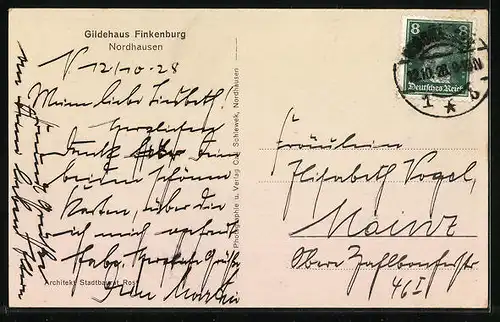 Gildehaus Finkenburg
Nordhausen
N 12/10.28
Meine liebe Liesbeth!
Herzlichen
Dank für Deine
beiden schönen
Karten, über die
ich mich gefreut
habe. Herzliche Grüße
Dein Martin
Architekt Stadtbaurat Rost
Photographie u. Verlag Schiewek, Nordhausen
8
Deutsches Reich
12.10.28
Fräulein
Elisabeth Vogel,
Mainz
Obere Zahlbacherstr
46 I